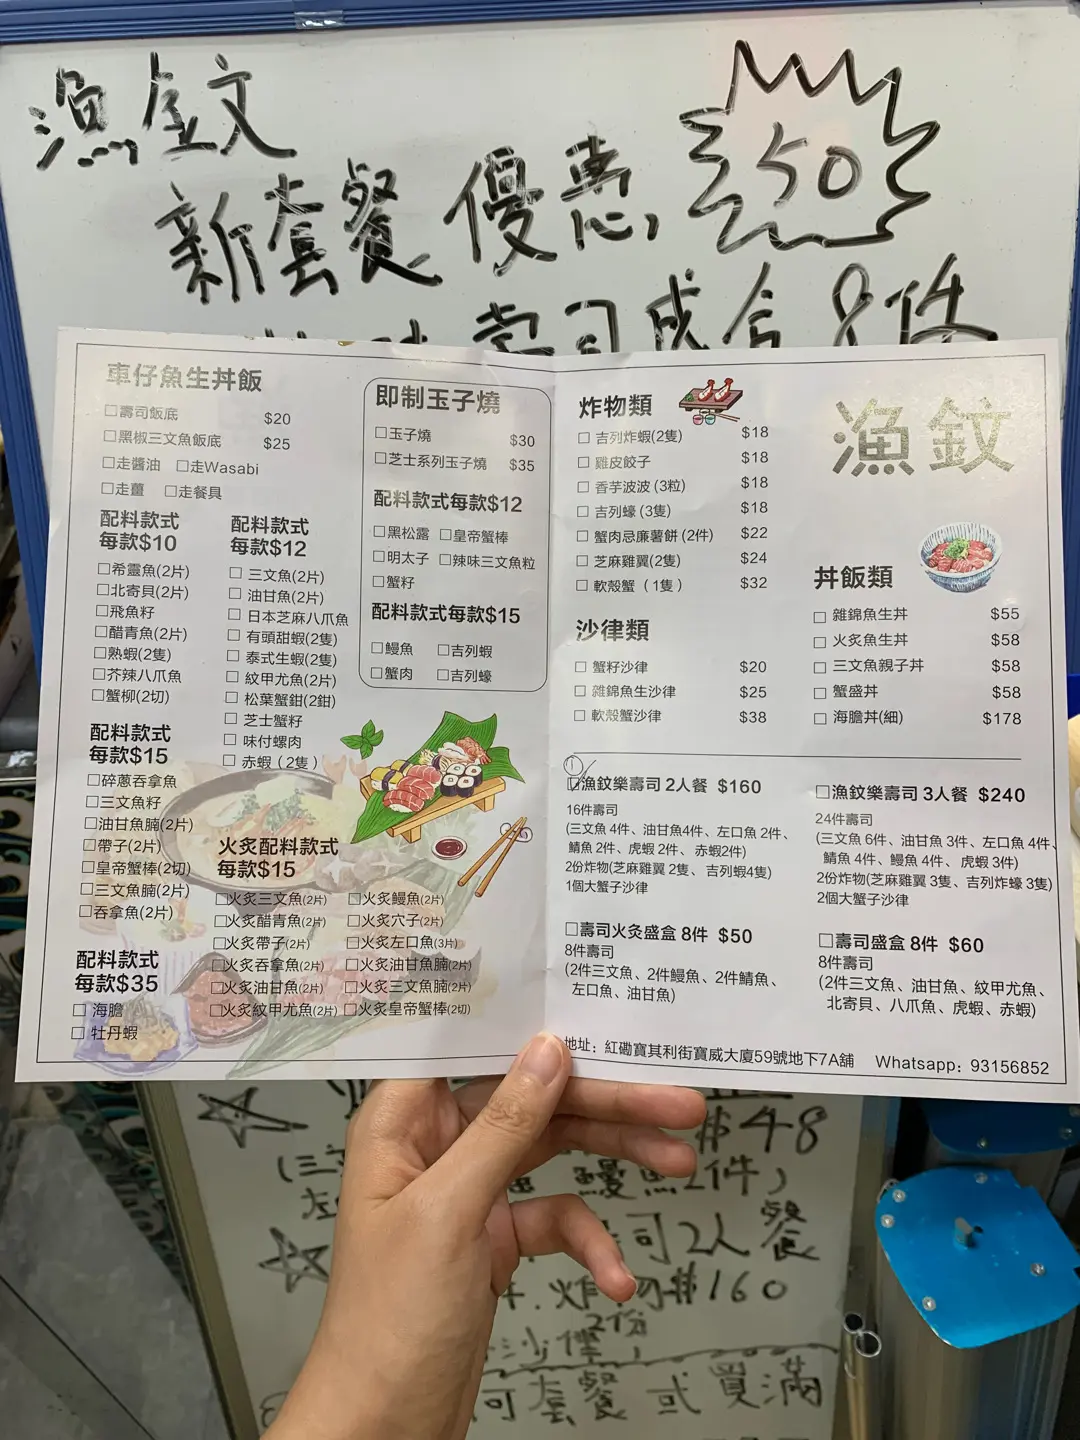 漁鈫文
新套餐優惠,
50
壽司盛合8件
車仔魚生丼飯
□壽司飯底 $20
□黑椒三文魚飯底 $25
□走醬油 □走Wasabi
□走薑 □走餐具
配料款式
每款$10
□希靈魚(2片)
□北寄貝(2片)
□飛魚籽
□醋青魚(2片)
□熟蝦(2隻)
□芥辣八爪魚
□蟹柳(2切)
配料款式
每款$15
□碎蔥吞拿魚
□三文魚籽
□油甘魚腩(2片)
□帶子(2片)
□皇帝蟹棒(2切)
□三文魚腩(2片)
□吞拿魚(2片)
配料款式
每款$35
□ 海膽
□ 牡丹蝦
配料款式
每款$12
□ 三文魚(2片)
□ 油甘魚(2片)
□ 日本芝麻八爪魚
□ 有頭甜蝦(2隻)
□ 泰式生蝦(2隻)
□ 紋甲尤魚(2片)
□ 松葉蟹鉗(2鉗)
□ 芝士蟹籽
□ 味付螺肉
□ 赤蝦(2隻)
火炙配料款式
每款$15
□火炙三文魚(2片) □火炙鰻魚(2片)
□火炙醋青魚(2片) □火炙穴子(2片)
□火炙帶子(2片) □火炙左口魚(3片)
□火炙吞拿魚(2片) □火炙油甘魚腩(2片)
□火炙油甘魚(2片) □火炙三文魚腩(2片)
□火炙紋甲尤魚(2片) □火炙皇帝蟹棒(2切)
即制玉子燒
□玉子燒 $30
□芝士系列玉子燒 $35
配料款式每款$12
□黑松露 □皇帝蟹棒
□明太子 □辣味三文魚粒
□蟹籽
配料款式每款$15
□鰻魚 □吉列蝦
□蟹肉 □吉列蠔
炸物類
□ 吉列炸蝦(2隻) $18
□ 雞皮餃子 $18
□ 香芋波波 (3粒) $18
□ 吉列蠔 (3隻) $18
□ 蟹肉忌廉薯餅 (2件) $22
□ 芝麻雞翼(2隻) $24
□ 軟殼蟹(1隻) $32
沙律類
□ 蟹籽沙律 $20
□ 雜錦魚生沙律 $25
□ 軟殼蟹沙律 $38
漁鈫
丼飯類
□ 雜錦魚生丼 $55
□ 火炙魚生丼 $58
□ 三文魚親子丼 $58
□ 蟹盛丼 $58
□ 海膽丼(細) $178
□漁鈫樂壽司 2人餐 $160
16件壽司
(三文魚 4件、油甘魚4件、左口魚 2件、
鯖魚 2件、虎蝦 2件、赤蝦2件)
2份炸物(芝麻雞翼 2隻、吉列蝦4隻)
1個大蟹子沙律
□壽司火灸盛盒 8件 $50
8件壽司
(2件三文魚、2件鰻魚、2件鯖魚、
左口魚、油甘魚)
□漁鈫樂壽司 3人餐 $240
24件壽司
(三文魚 6件、油甘魚 3件、左口魚 4件、
鯖魚 4件、鰻魚 4件、虎蝦 3件)
2份炸物(芝麻雞翼 3隻、吉列炸蠔 3隻)
2個大蟹子沙律
□壽司盛盒 8件 $60
8件壽司
(2件三文魚、油甘魚、紋甲尤魚、
北寄貝、八爪魚、虎蝦、赤蝦)
地址：紅磡寶其利街寶威大廈59號地下7A舖 Whatsapp：93156852
$48
(三 鰻魚2件)
左
司2人餐
炸物$160
2份
沙律
套餐 或買滿